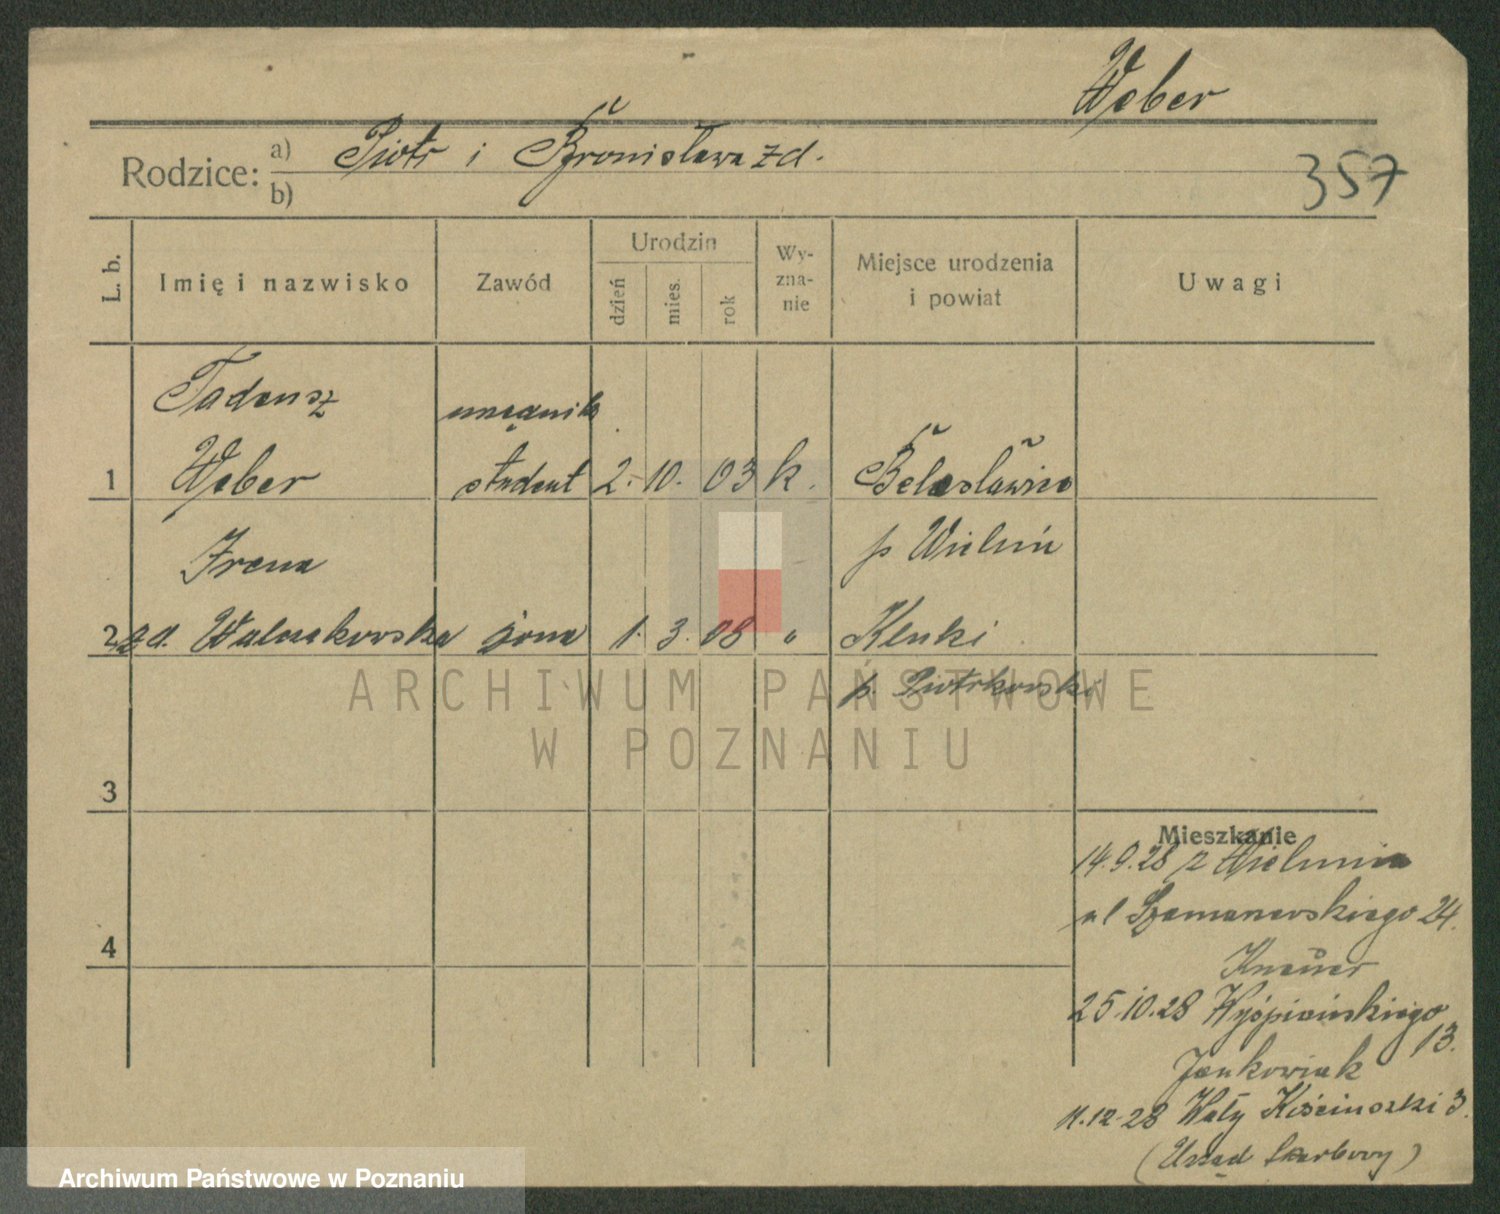 Weber
Rodzice: a) Piotr i Bronisława zd.
b)
357
L. b.
Imię i nazwisko
Zawód
Urodzin
dzień
mies.
rok
Wy-
zna-
nie
Miejsce urodzenia
i powiat
Uwagi
Tadeusz urzędnik
1 Weber student 2. 10. 03 k. Bolesławiec
Irena p Wieluń
2 zd. Walczakowska żona 1. 3. 08 " Kluki
p. Piotrkowski
3
4
Mieszkanie
14.9.28 z Wielunia
ul Szamarzewskiego 24.
Knauer
25.10.28 Wyśpiańskiego
13.
Jankowiak
11.12.28 Wały Kościuszki 3.
(Urząd Skarbowy)
ARCHIWUM PAŃSTWOWE
W POZNANIU
Archiwum Państwowe w Poznaniu